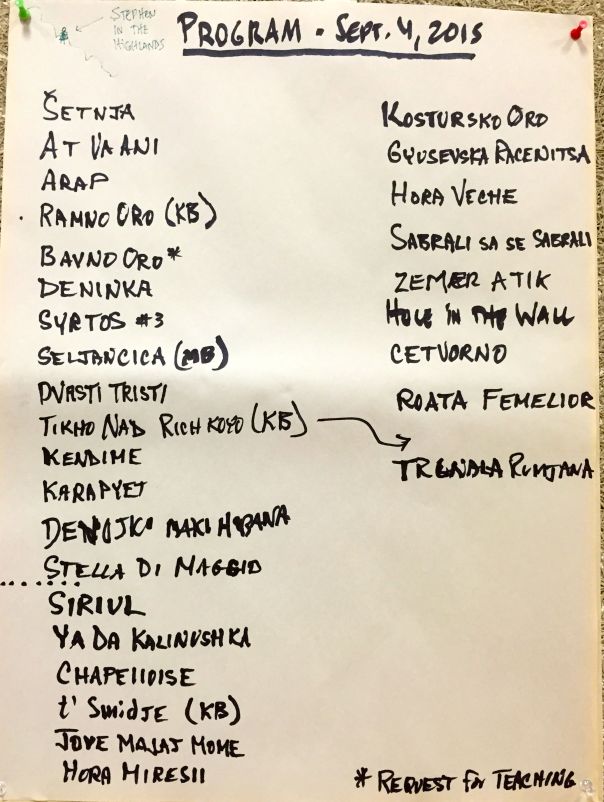 STEPHEN
IN THE
HIGHLANDS
PROGRAM - SEPT. 4, 2015
ŠETNJA
AT VA ANI
ARAP
RAMNO ORO (KB)
BAVNO ORO *
DENINKA
SYRTOS #3
SELJANCICA (MB)
DVASTI TRISTI
TIKHO NAD RICHKOYO (KB)
KENDIME
KARAPYET
DEVOJKO MAKI HUBANA
STELLA DI MAGGIO
SIRIUL
YA DA KALINUSHKA
CHAPELLOISE
t' SMIDJE (KB)
JOVE MALAJ MOME
HORA MIRESII
KOSTURSKO ORO
GYUSEVSKA RACENITSA
HORA VECHE
SABRALI SA SE SABRALI
ZEMER ATIK
HOLE IN THE WALL
CETVORNO
ROATA FEMEILOR
TRGNALA RUMJANA
* REQUEST FOR TEACHING